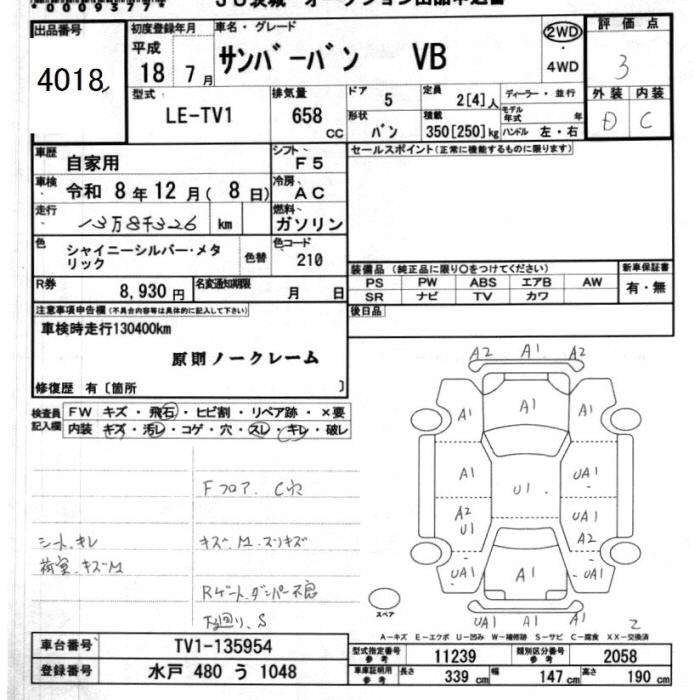 出品番号
4018
初度登録年月
平成
18 7月
車名・グレード
サンバーバン VB
2WD
・
4WD
評価点
3
外装 内装
D C
型式
LE-TV1
排気量
658
CC
ドア
5
定員
2[4]人
ディーラー・並行
モデル年式 年
ハンドル 左・右
形状
バン
積載
350[250]kg
車歴
自家用
シフト
F5
セールスポイント(正常に機能するものに限ります)
車検
令和 8年 12月( 8日)
冷房
AC
走行
13万8千326 km
燃料
ガソリン
色
シャイニーシルバー・メタ
リック
色替
色コード
210
装備品 (純正品に限り○をつけてください)
PS PW ABS エアB AW
SR ナビ TV カワ
新車保証書
有・無
R券
8,930円
名変通知期限
月 日
後日品
注意事項申告欄(不具合内容等は具体的に記入して下さい)
車検時走行130400km
原則ノークレーム
修復歴 有〔箇所 〕
検査員
記入欄
FW キズ・飛石・ヒビ割・リペア跡・×要
内装 キズ・汚レ・コゲ・穴・スレ・キレ・破レ
Fフロア. C穴
シート. キレ
荷室. キズM
キズ. M. スリキズ
Rゲート. ダンパー不良
下廻り. S
A2 A1 A2
A1 A1 A1
A1 U1 UA1
A2
U1
UA1
A2
UA1 A1 UA1
UA1 A1 UA1
スペア
2
A-キズ E-エクボ U-凹み W-補修跡 S-サビ C-腐食 XX-交換済
車台番号
TV1-135954
登録番号
水戸 480 う 1048
型式指定番号
参考
11239
類別区分番号
参考
2058
車庫証明用
参考
長さ
339 cm
幅
147 cm
高さ
190 cm